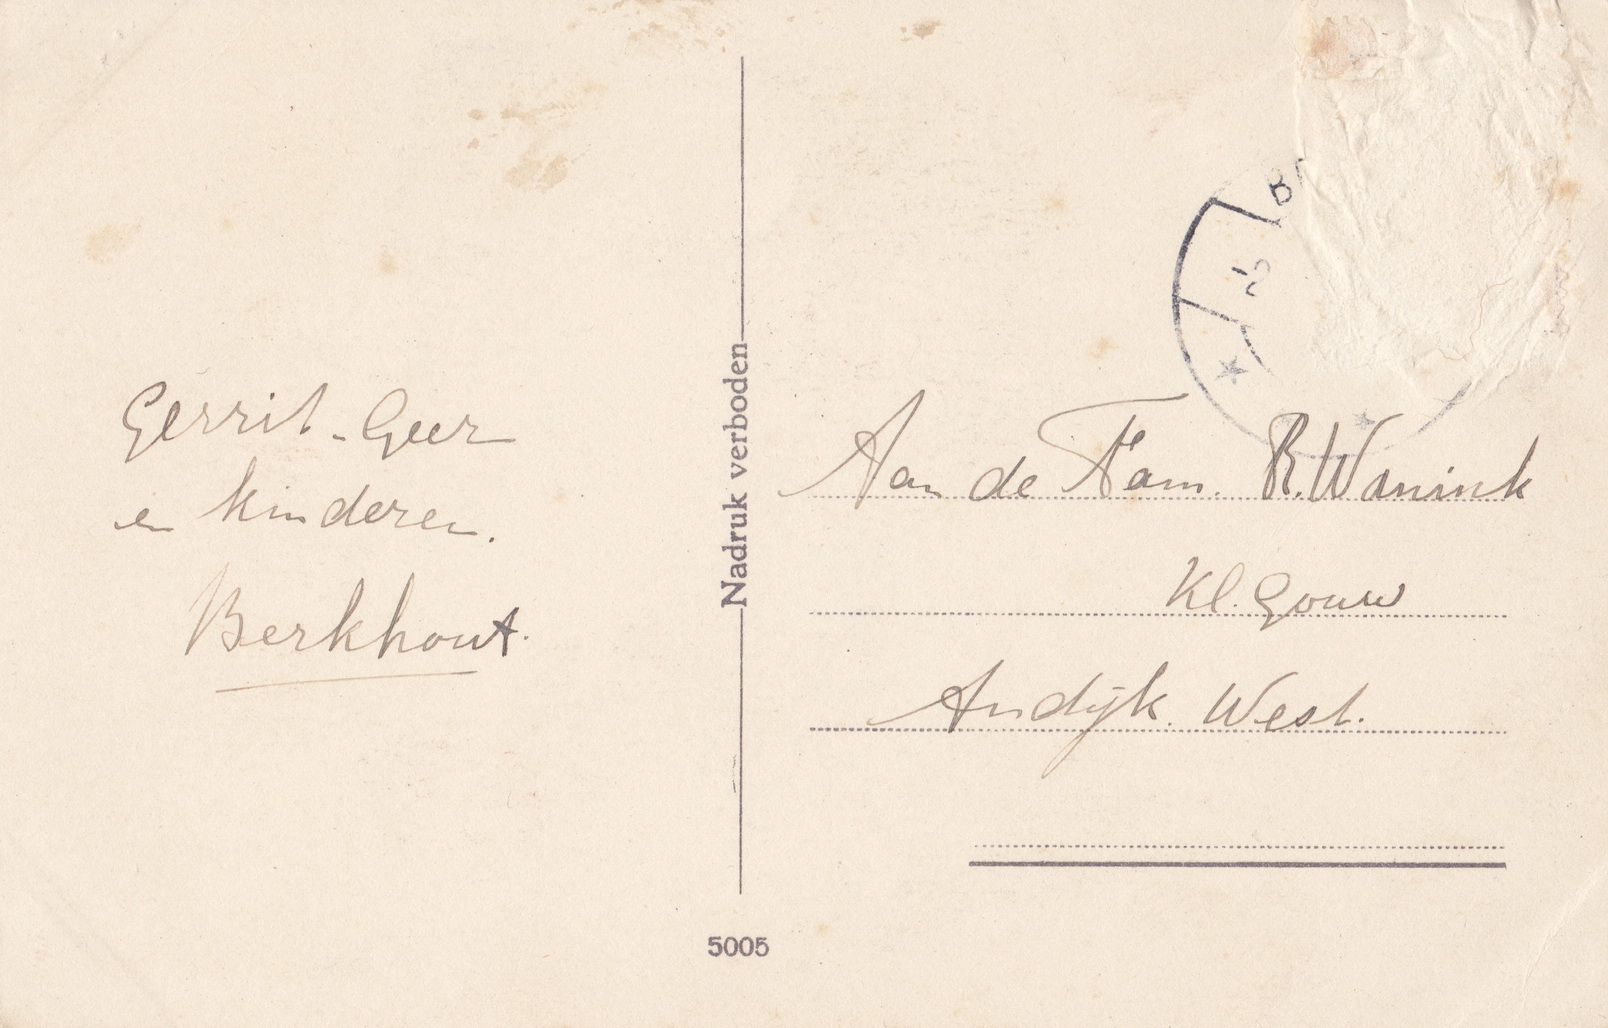 Gerrit - Geer
en kinderen.
Berkhout.
Nadruk verboden
5005
Aan de Fam. R. Wanink
Kl. Gouw
Andijk. West.